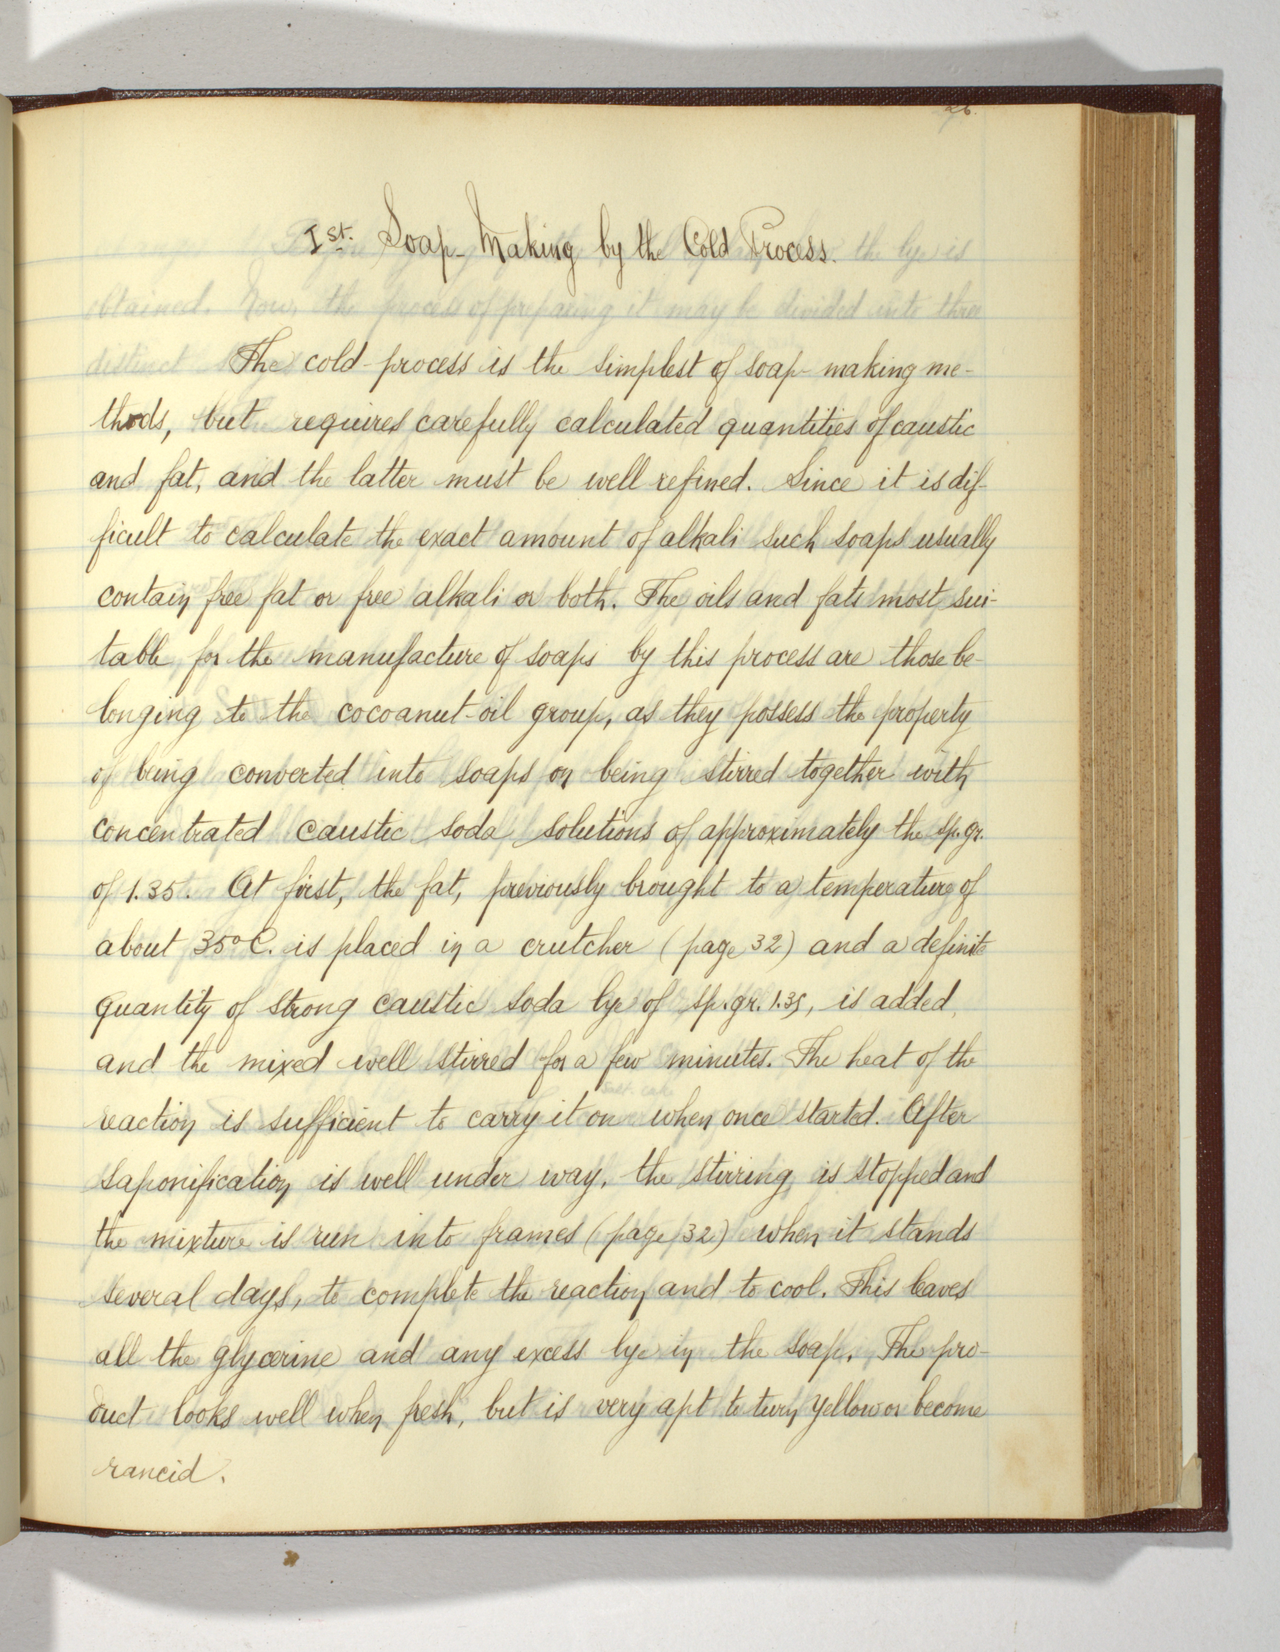 26.
Ist. Soap-Making by the Cold Process.
The cold-process is the simplest of soap-making me-
thods, but requires carefully calculated quantities of caustic
and fat, and the latter must be well refined. Since it is dif-
ficult to calculate the exact amount of alkali such soaps usually
contain free fat or free alkali or both. The oils and fats most sui-
table for the manufacture of soaps by this process are those be-
longing to the cocoanut-oil group, as they possess the property
of being converted into soaps on being stirred together with
concentrated caustic soda solutions of approximately the sp.gr.
of 1.35. At first, the fat, previously brought to a temperature of
about 35°C. is placed in a crutcher (page 32) and a definite
quantity of strong caustic soda lye of sp.gr. 1.35, is added,
and the mixed well stirred for a few minutes. The heat of the
reaction is sufficient to carry it on when once started. After
saponification is well under way, the stirring is stopped and
the mixture is run into frames (page 32) when it stands
several days, to complete the reaction and to cool. This leaves
all the glycerine and any excess lye in the soap. The pro-
duct looks well when fresh, but is very apt to turn yellow or become
rancid.